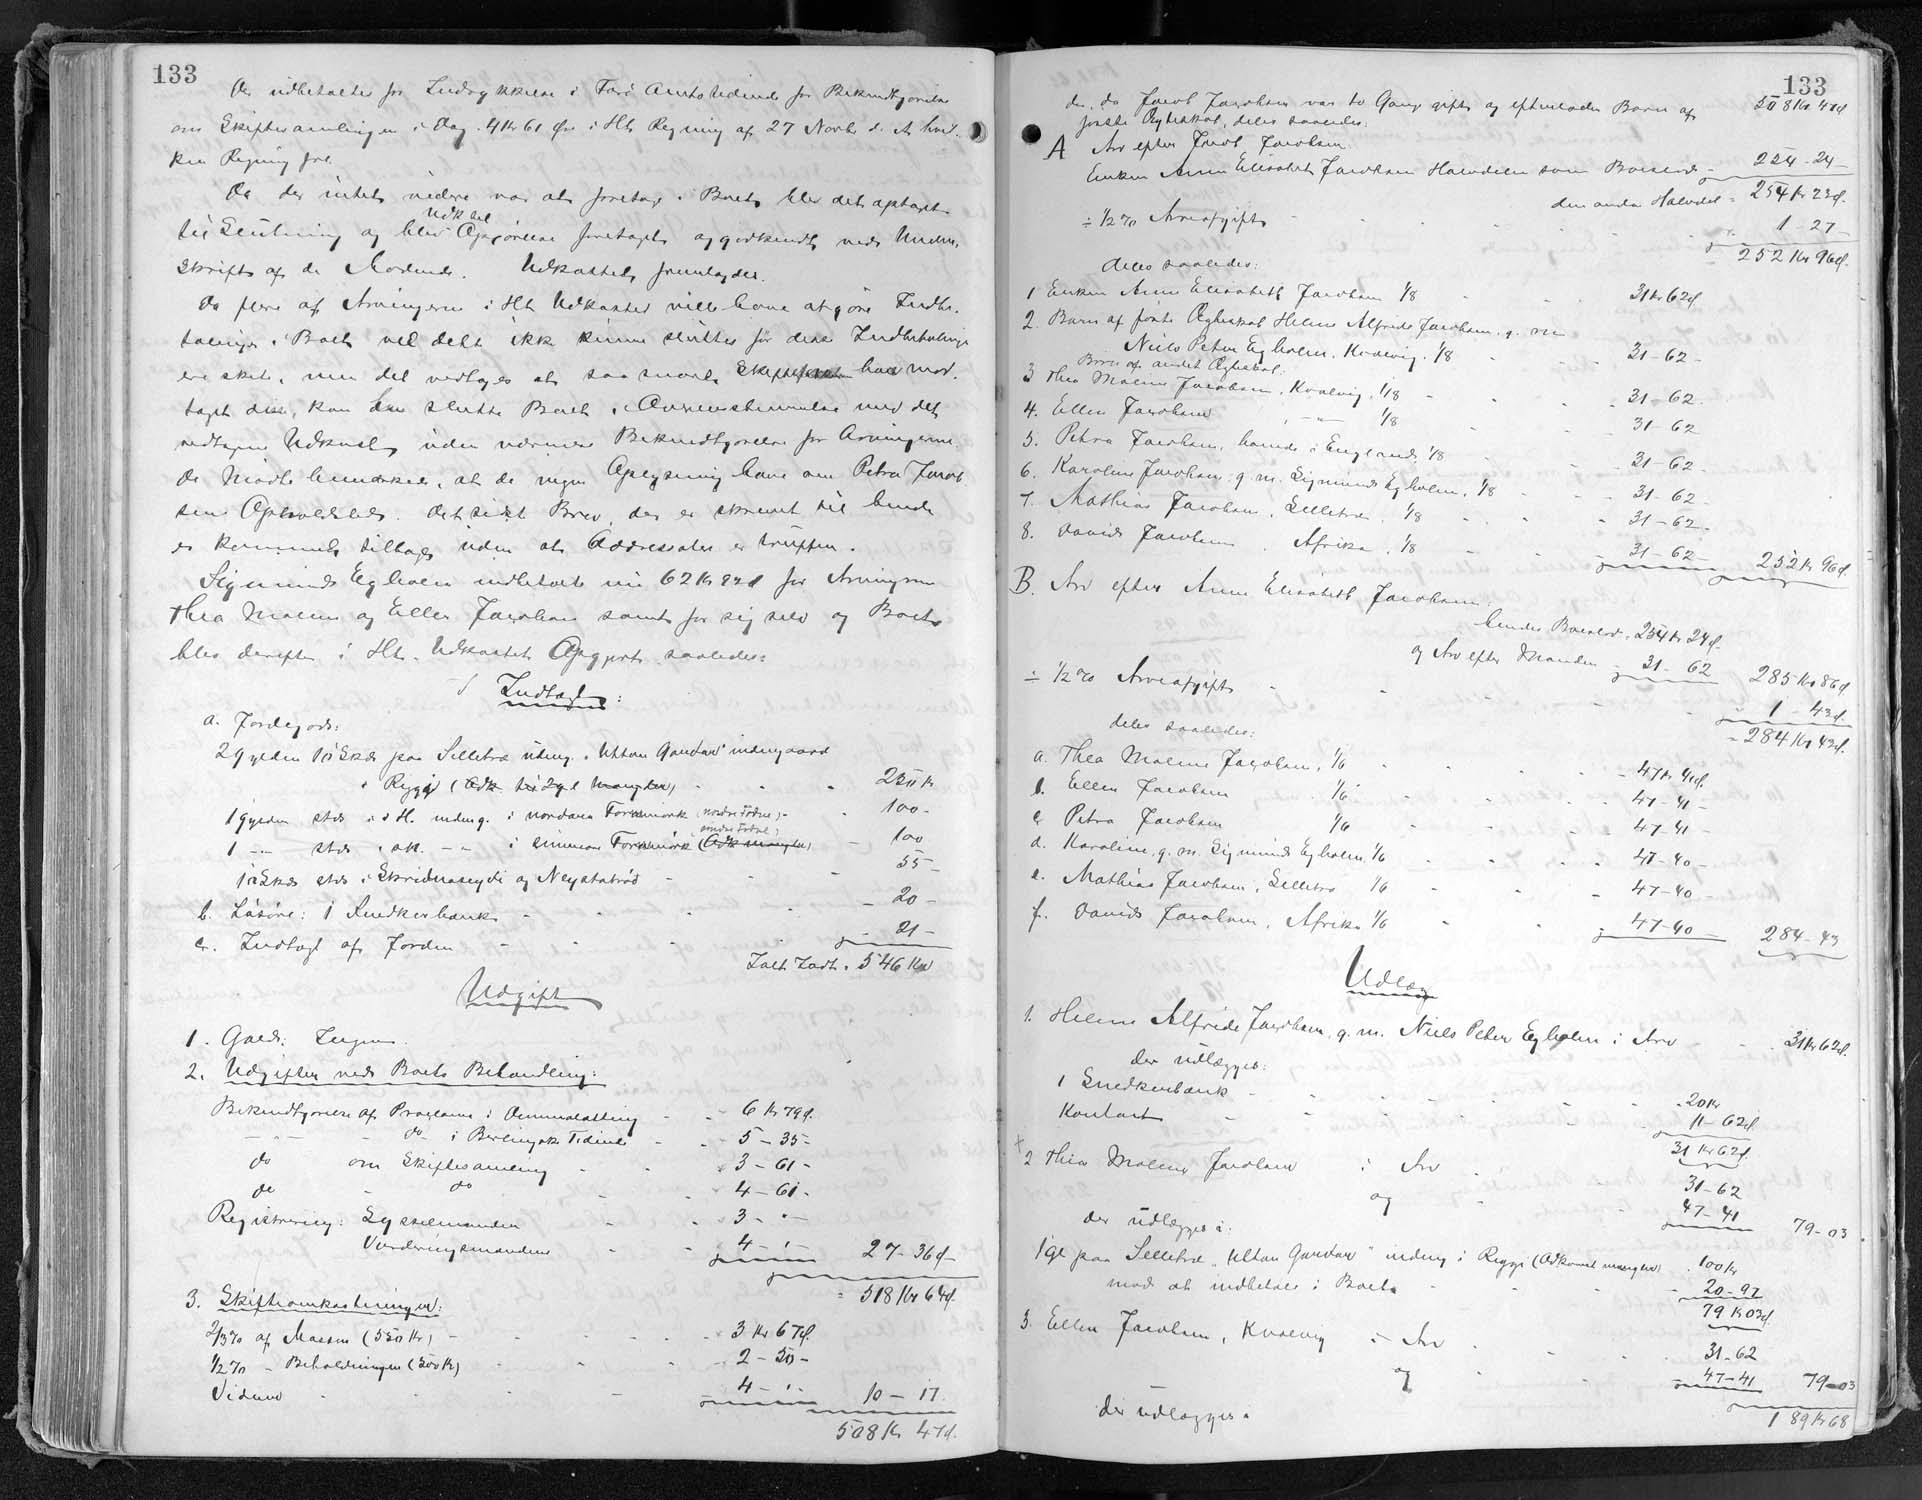 133
Der udbetaltes for Indrykkelse i Færö Amtstidende for Bekendtgörelse
om Skiftesamlingen i Dag. 4 Kr 61 Öre i Hht Regning af 27 Novbr d. A. hvil-
ken Regning frl.
Da der intet videre var at foretage i Boet, blev det optaget
til Slutning og blev Udk til Opgörelse foretaget og godkendt ved Under-
skrift af de Mödende. Udkastet fremlagdes.
Da flere af Arvingerne i Hht Udkastet ville have at göre Indbe-
talinger i Boet vil dette ikke kunne sluttes för disse Indbetalinger
ere sket, men det vedtoges at saa snart Skifteretten har mod-
taget disse, kan den slutte Boet i Overensstemmelse med det
vedtagne Udkast uden nærmere Bekendtgörelse for Arvingerne.
De Mödte bemærkede, at de ingen Oplysning have om Petra Jacob-
sens Opholdssted. Det sidst Brev, der er skrevet til hende
er kommet tilbage uden at Addressaten er truffen.
Sigmund Egholm indbetalte nu 62 Kr 82 d for Arvingerne
Thea Malene og Ellen Jacobsen samt for sig selv og Boet
blev derefter i Hht. Udkastet Opgjort saaledes:
Indtægt:
a. Jordegods:
2 gylden 10 Skds paa Selletræ udmg. "Uttan Gardar" indmgaard
i Ryggi (Adk. til 2 gl mangler) - - - 250 Kr
1 gylden stds i s H. indmg. i nordara Fornmörk (nordre Fodne) - 100 -
1 -"- stds i ok. -"- i sunnara Fornmörk (söndre Fodne) (Adk mangler) - 100
10 Skds stds i Skridnaseydi og Neystatröd - - - 55 -
b. Lösöre: 1 Snedkerbænk - - - - 20 -
c. Indtægt af Jorden - - - - 21 -
Ialt Indt. 546 Kr
Udgift
1. Gæld: Ingen.
2. Udgifter ved Boets Behandling:
Bekendtgörelse af Proclama i Dimmalætting - - 6 Kr 79 d.
-"- - do i Berlingske Tidende - - 5 - 35 -
do om Skiftesamling - - 3 - 61 -
do - do - - 4 - 61 -
Registrering: Sysselmanden - - 3 - " -
Vurderingsmændene - - 4 - " - 27 - 36 d -
= 518 Kr 64 d.
3. Skifteomkostninger:
2/3 % af Massen (550 Kr) - - - - 3 Kr 67 d.
1/2 % - Beholdningen (500 Kr) - - - 2 - 50 -
Vidner - - - - 4 - " - 10 - 17.
508 Kr 47 d.
133
der, da Jacob Jacobsen var to Gange gift og efterlader Barn af 508 Kr 47 d
förste Ægteskab, deles saaledes.
A Arv efter Jacob Jacobsen
Enken Anna Elisabeth Jacobsen Halvdelen som Boeslod - 254 - 24 -
den anden Halvdel = 254 Kr 23 d.
÷ 1/2 % Arveafgift - - - - - 1 - 27 -
= 252 Kr 96 d.
deles saaledes:
1 Enken Anna Elisabeth Jacobsen 1/8 - - - 31 Kr 62 d.
2. Barn af förste Ægteskab Helene Alfride Jacobsen. g. m
Niels Peter Egholm. Kvalvig. 1/8 - - - 31 - 62 -
Börn af andet Ægteskab.
3 Thea Malene Jacobsen, Kvalvig. 1/8 - - - 31 - 62 -
4. Ellen Jacobsen -"- 1/8 - - - 31 - 62
5. Petra Jacobsen, boende i England, 1/8 - - - 31 - 62 -
6. Karoline Jacobsen g. m. Sigmund Egholm. 1/8 - - - 31 - 62 -
7. Mathias Jacobsen, Selletræ, 1/8 - - - 31 - 62 -
8. David Jacobsen, Afrika, 1/8 - - - 31 - 62 - 252 Kr 96 d.
B. Arv efter Anna Elisabeth Jacobsen.
hendes Boeslod. 254 Kr 24 d.
og Arv efter Manden - 31 - 62 285 Kr 86 d.
÷ 1/2 % Arveafgift - - - - 1 - 43 d.
= 284 Kr 43 d.
deles saaledes:
a. Thea Malene Jacobsen, 1/6 - - - 47 Kr 41 d.
b. Ellen Jacobsen 1/6 - - - 47 - 41 -
c. Petra Jacobsen 1/6 - - - 47 - 41 -
d. Karoline. g. m. Sigmund Egholm. 1/6 - - - 47 - 40 -
e. Mathias Jacobsen, Selletræ 1/6 - - - 47 - 40 -
f. David Jacobsen, Afrika 1/6 - - - 47 - 40 - 284 - 43
Udlæg
1. Helene Alfride Jacobsen, g. m. Niels Peter Egholm i Arv - - 31 Kr 62 d.
der udlægges:
1 Snedkerbænk - - - - - 20 Kr
Kontant - - - - - 11 - 62 d.
31 Kr 62 d.
2 Thea Malene Jacobsen i Arv - - 31 - 62
og - - 47 - 41 79 - 03
der udlægges i:
1 gl paa Selletræ "Uttan Gardar" indmg i Ryggi (Adkomst mangler) 100 Kr
mod at indbetale i Boet - - - 20 - 97
79 Kr 03 d.
3. Ellen Jacobsen, Kvalvig i Arv - - 31 - 62
og - - 47 - 41 79 - 03
der udlægges i 189 Kr 68